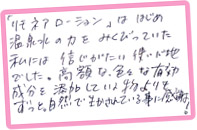 「リモネアローション」は はじめ
温泉水の力を みくびっていた
私には 信じがたい 使い心地
でした。高額な、色々な有効
成分を 添加している物よりも
ずっと自然で 生かされている事に感謝。